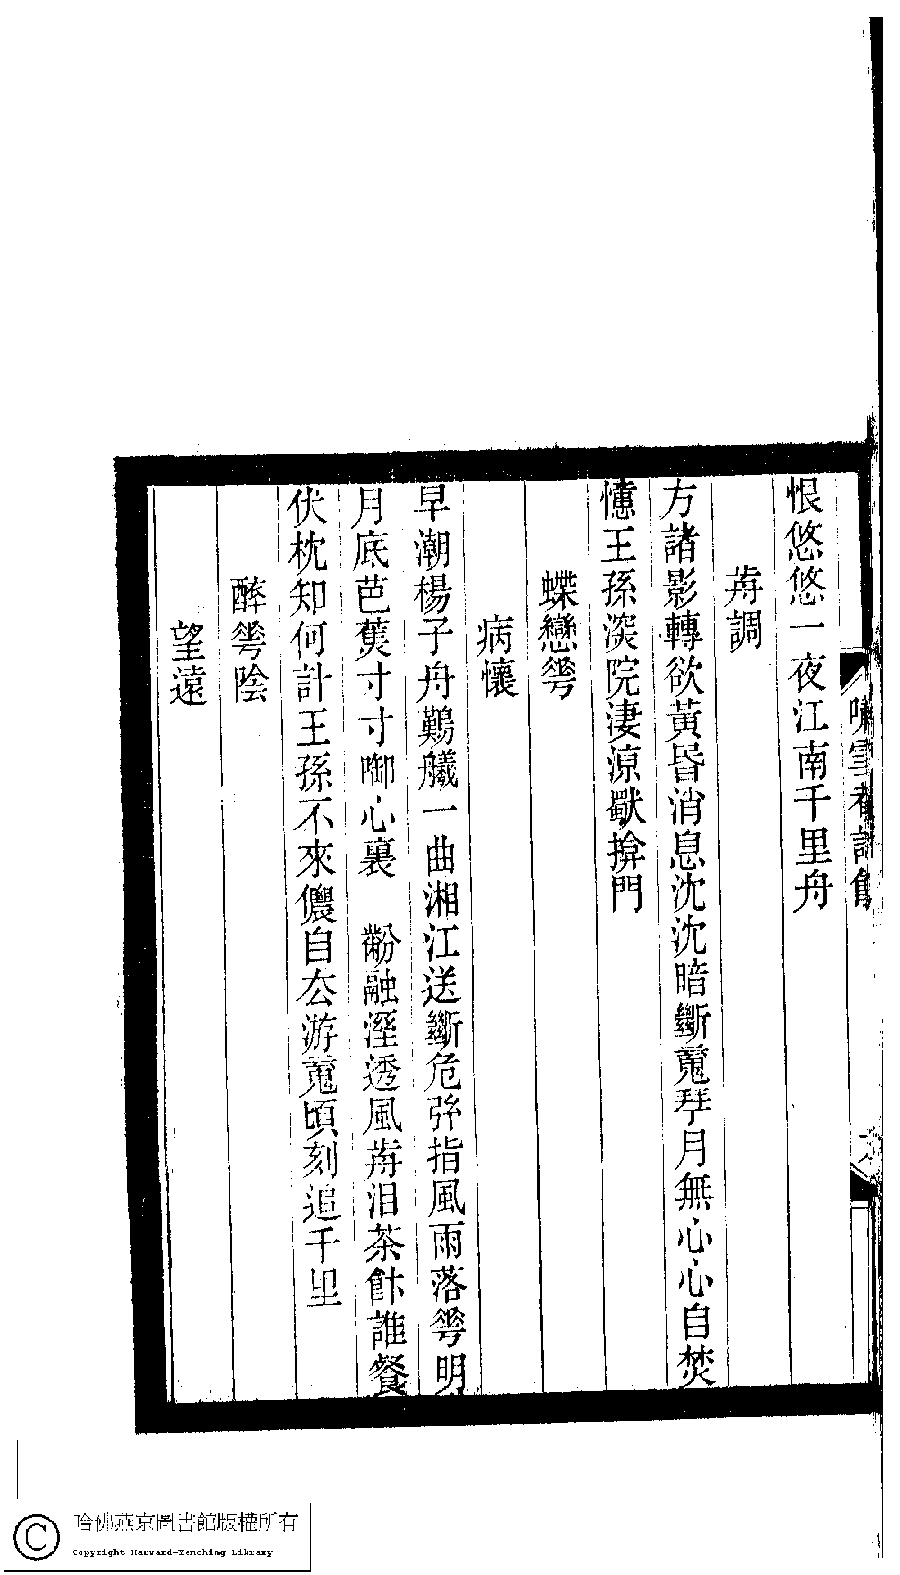 嘯雪菴詩餘
恨悠悠一夜江南千里舟
歬調
方諸影轉欲黃昏消息沈沈暗斷䰟琴月無心心自焚
憶王孫深院淒涼獸揜門
蝶戀𠌶
病懷
早潮楊子舟鷬艤一曲湘江送斷危弦指風雨落𠌶明
月底芭蕉寸寸啣心裏　黺融溼透風歬泪茶餅誰餐
伏枕知何計王孫不來儂自厺游䰟頃刻追千里
醉𠌶陰
望遠
哈佛燕京圖書館版權所有
Copyright Harvard-Yenching Library